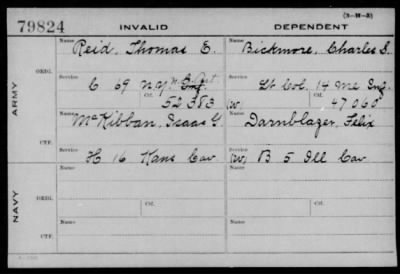 (3-M-2)
79824 INVALID DEPENDENT
Name Name
Reid, Thomas E. Bickmore, Charles S.
ORIG.
Service Service
C 69 N.Y. Lt Col, 14 Me Inf.
Ctf. Ctf.
52383 (W) 47060
ARMY
Name Name
McKibban, Isaac G. Darnblazer, Felix
Service Service
CTF.
H 16 Kans Cav (W) B 5 Ill Cav
Name Name
ORIG.
Service Ctf. Service Ctf.
NAVY
Name Name
CTF.
Service Service